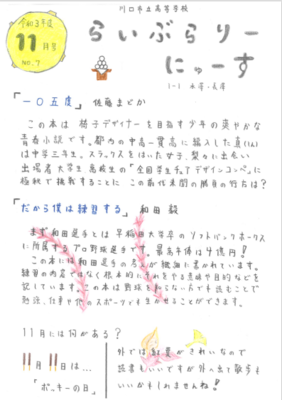 川口市立高等学校
令和3年度
11月号
No.7
らいぶらりー
にゅーす
1-1
「一〇五度」 佐藤まどか
この本は 椅子デザイナーを目指す少年の爽やかな
青春小説です。都内の中高一貫高に編入した真(しん)
は中学三年生。スラックスをはいた女子、梨々と出会い
出場者 大学生 高校生の「全国学生チェアデザインコンペ」に
極秘で挑戦することに この前代未聞の勝負の行方は?
「だから僕は練習する」 和田 毅
まず和田選手とは 早稲田大学卒のソフトバンクホークス
に所属するプロ野球選手です。最高年俸は4億円!
この本には和田選手の考えが綿密に書かれています。
練習の内容ではなく根本的にそれをやる意味や目的などを
記しています。この本は野球を知らない方でも読むことで
勉強、仕事や他のスポーツでも生かせることができます。
11月には何がある?
11月11日は…
「ポッキーの日」
外では紅葉がきれいなので
読書もいいですが外へ出て散歩も
いいかもしれませんね!